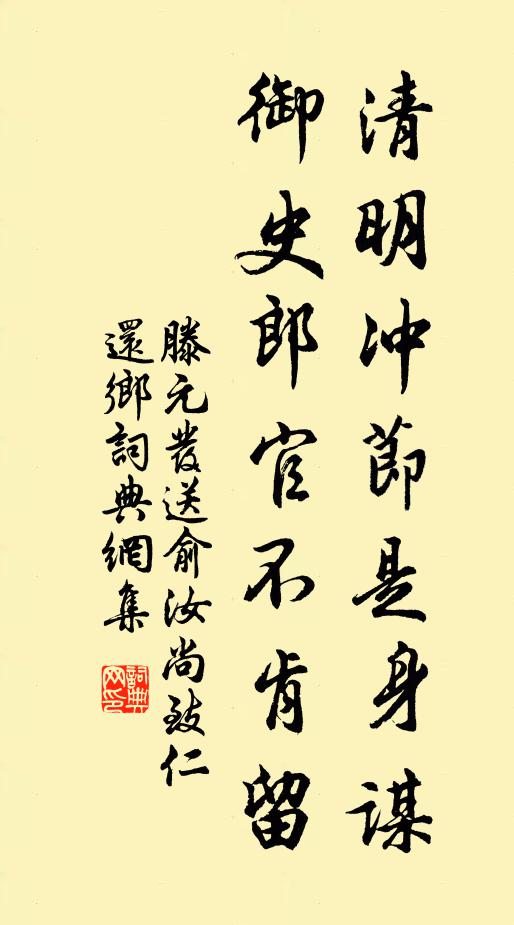 清明冲節是身謀
御史郎官不肯留
滕元發送俞汝尚致仁
還鄉詞典網集
詞典
网印